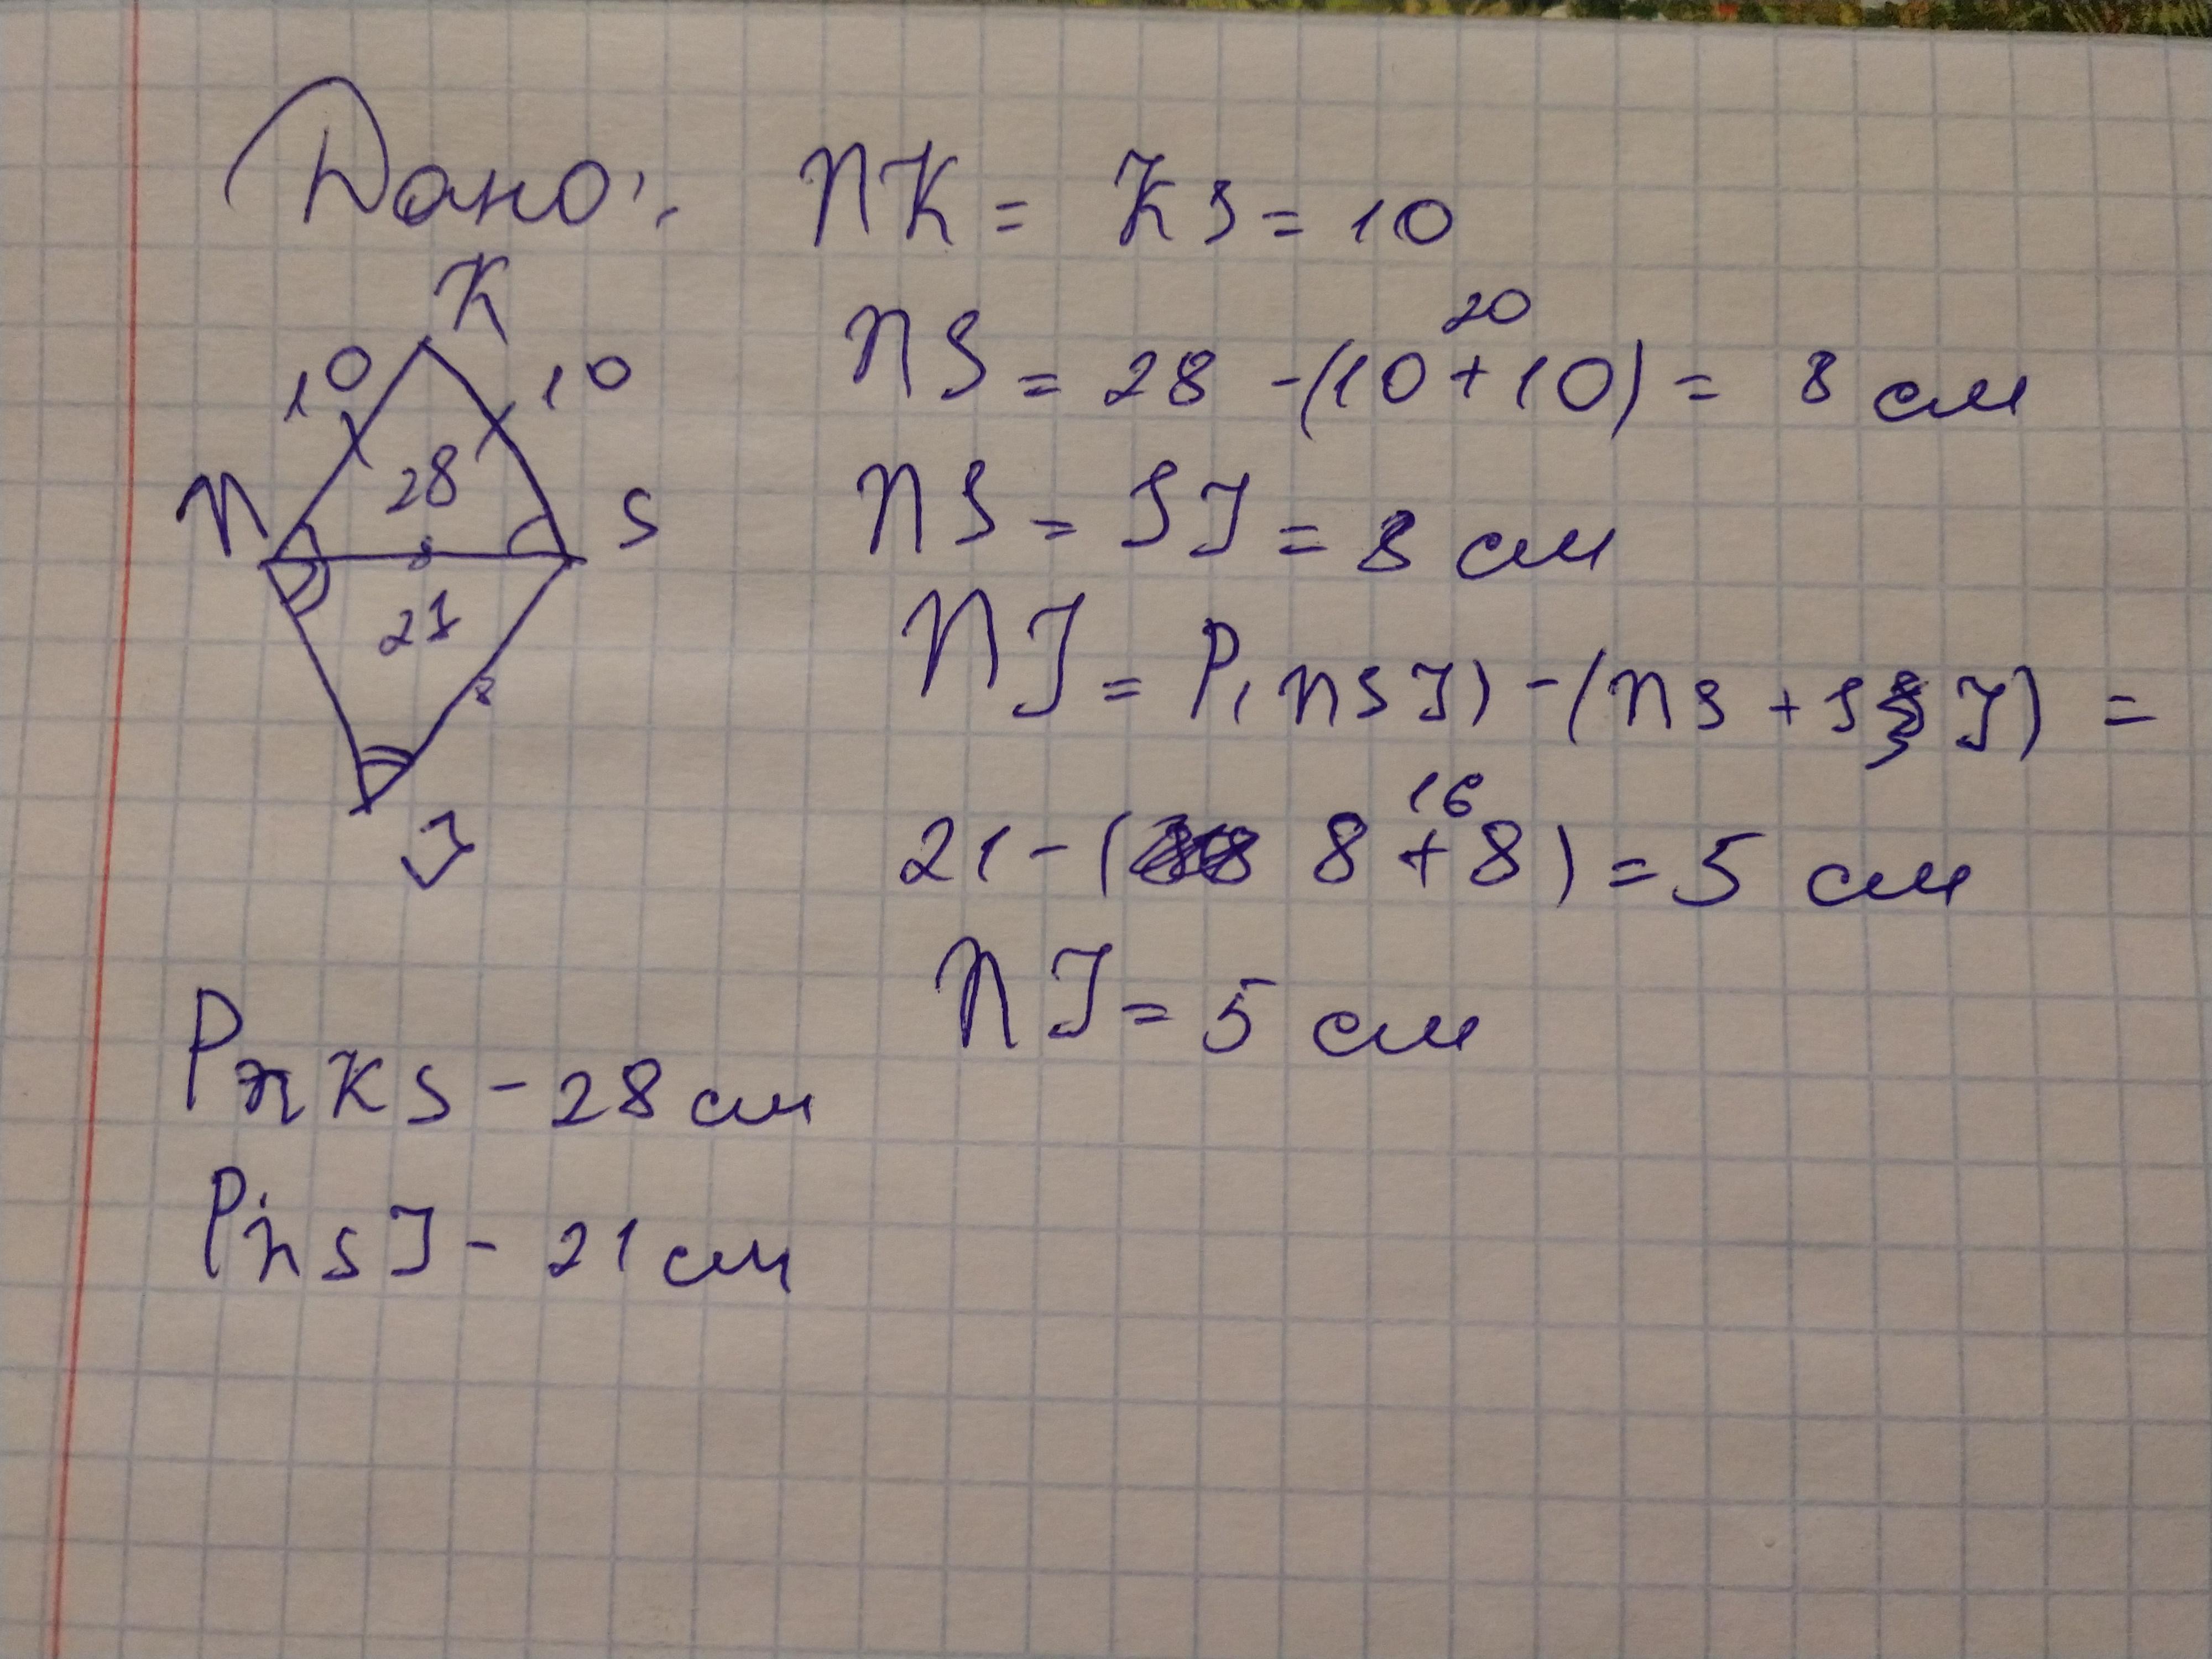 Дано:
NK = KS = 10
K
10
10
28
N
S
21
J
20
NS = 28 - (10 + 10) = 8 см
NS = SJ = 8 см
NJ = P(NSJ) - (NS + SJ) =
16
21 - (8 + 8) = 5 см
NJ = 5 см
PNKS - 28 см
PNSJ - 21 см